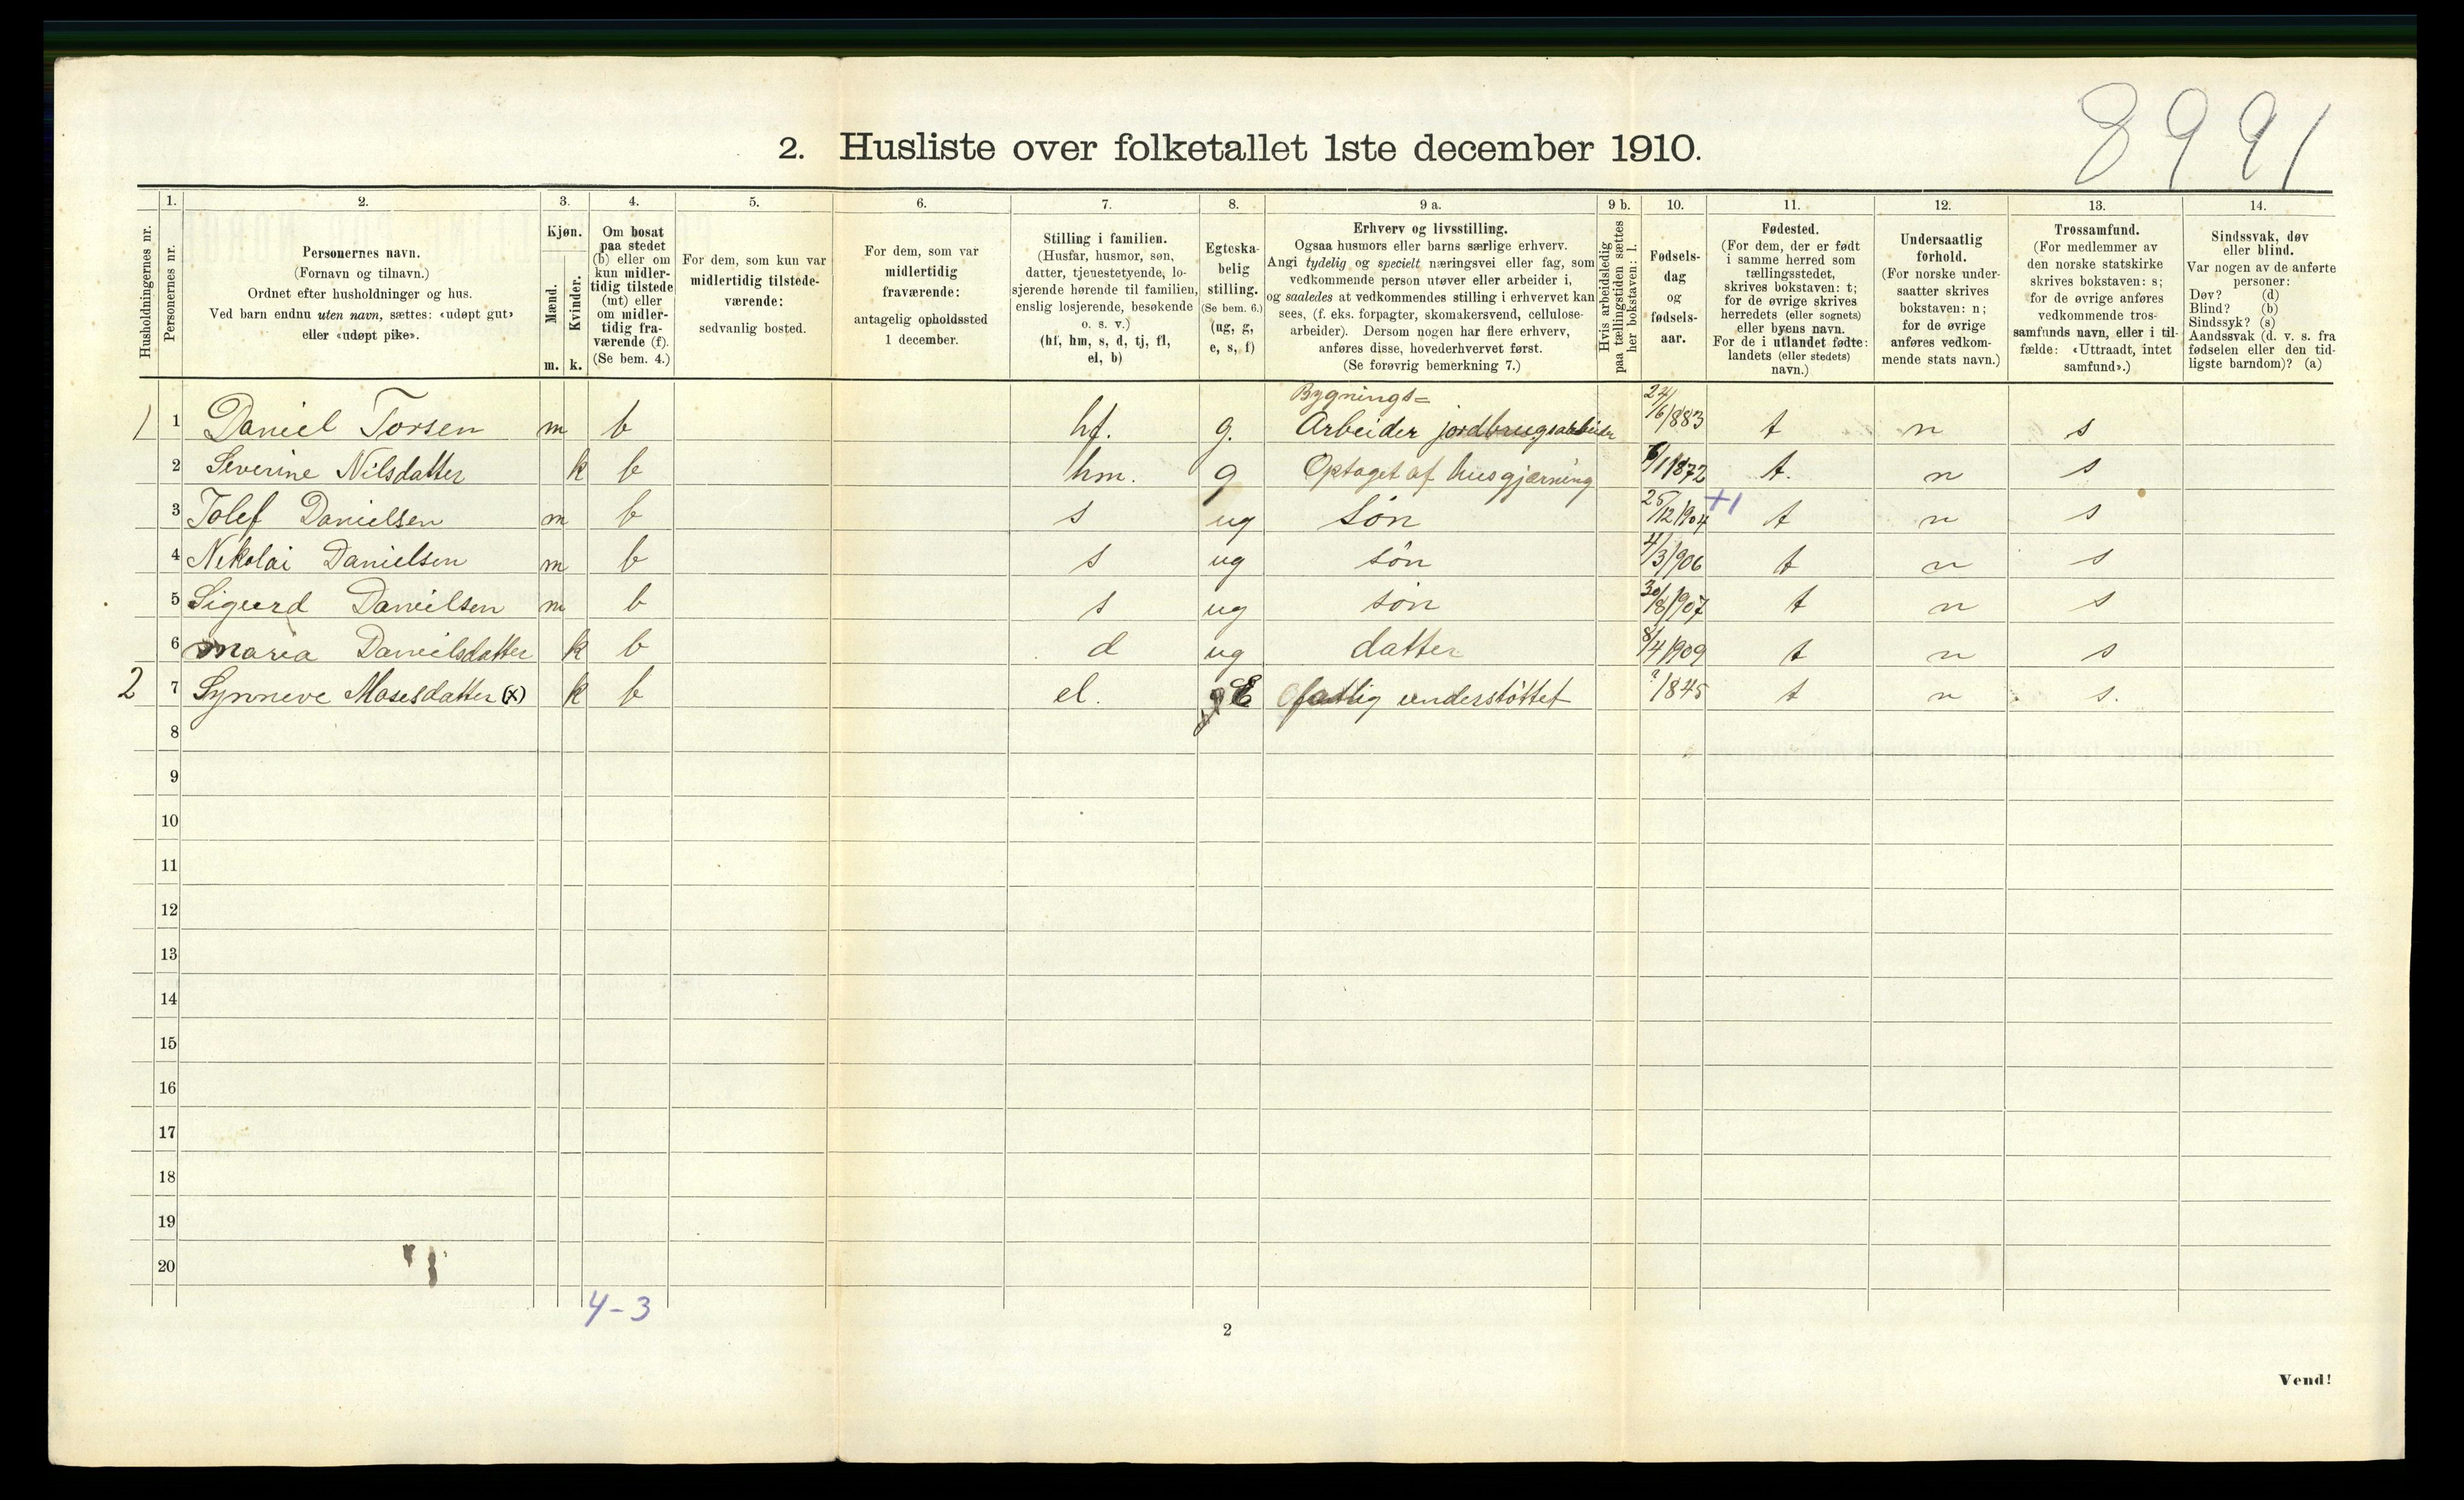 8991
2. Husliste over folketallet 1ste december 1910.
Husholdningernes nr.
1. Personernes nr.
2. Personernes navn. (Fornavn og tilnavn.) Ordnet efter husholdninger og hus. Ved barn endnu uten navn, sættes: «udøpt gut» eller «udøpt pike».
3. Kjøn. Mænd. m. Kvinder. k.
4. Om bosat paa stedet (b) eller om kun midlertidig tilstede (mt) eller om midlertidig fraværende (f). (Se bem. 4.)
5. For dem, som kun var midlertidig tilstedeværende: sedvanlig bosted.
6. For dem, som var midlertidig fraværende: antagelig opholdssted 1 december.
7. Stilling i familien. (Husfar, husmor, søn, datter, tjenestetyende, losjerende hørende til familien, enslig losjerende, besøkende o. s. v.) (hf, hm, s, d, tj, fl, el, b)
8. Egteskabelig stilling. (Se bem. 6.) (ug, g, e, s, f)
9 a. Erhverv og livsstilling. Ogsaa husmors eller barns særlige erhverv. Angi tydelig og specielt næringsvei eller fag, som vedkommende person utøver eller arbeider i, og saaledes at vedkommendes stilling i erhvervet kan sees, (f. eks. forpagter, skomakersvend, cellulosearbeider). Dersom nogen har flere erhverv, anføres disse, hovederhvervet først. (Se forøvrig bemerkning 7.)
9 b. Hvis arbeidsledig paa tællingstiden sættes her bokstaven: l.
10. Fødselsdag og fødselsaar.
11. Fødested. (For dem, der er født i samme herred som tællingsstedet, skrives bokstaven: t; for de øvrige skrives herredets (eller sognets) eller byens navn. For de i utlandet fødte: landets (eller stedets) navn.)
12. Undersaatlig forhold. (For norske undersaatter skrives bokstaven: n; for de øvrige anføres vedkommende stats navn.)
13. Trossamfund. (For medlemmer av den norske statskirke skrives bokstaven: s; for de øvrige anføres vedkommende trossamfunds navn, eller i tilfælde: «Uttraadt, intet samfund».)
14. Sindssvak, døv eller blind. Var nogen av de anførte personer: Døv? (d) Blind? (b) Sindssyk? (s) Aandssvak (d. v. s. fra fødselen eller den tidligste barndom)? (a)
Bygnings=
1 1 Daniel Torsen m b hf. g. Arbeider jordbrugsarbeider 24/6/883 t n s
2 Severine Nilsdatter k b hm. g Optaget af husgjærning 6/1 1872 t. n s
3 Tolef Danielsen m b s ug Søn 25/12 1904 +1 t n s
4 Nikolai Danielsen m b s ug søn 4/3/906 t n s
5 Sigurd Danielsen m b s ug søn 30/8/907 t n s
6 Maria Danielsdatter k b d ug datter 8/4 1909 t n s
2 7 Synneve Mosesdatter (x) k b el. g E fattig understøttet ?/1845 t n s.
8
9
10
11
12
13
14
15
16
17
18
19
20
4-3
2
Vend!